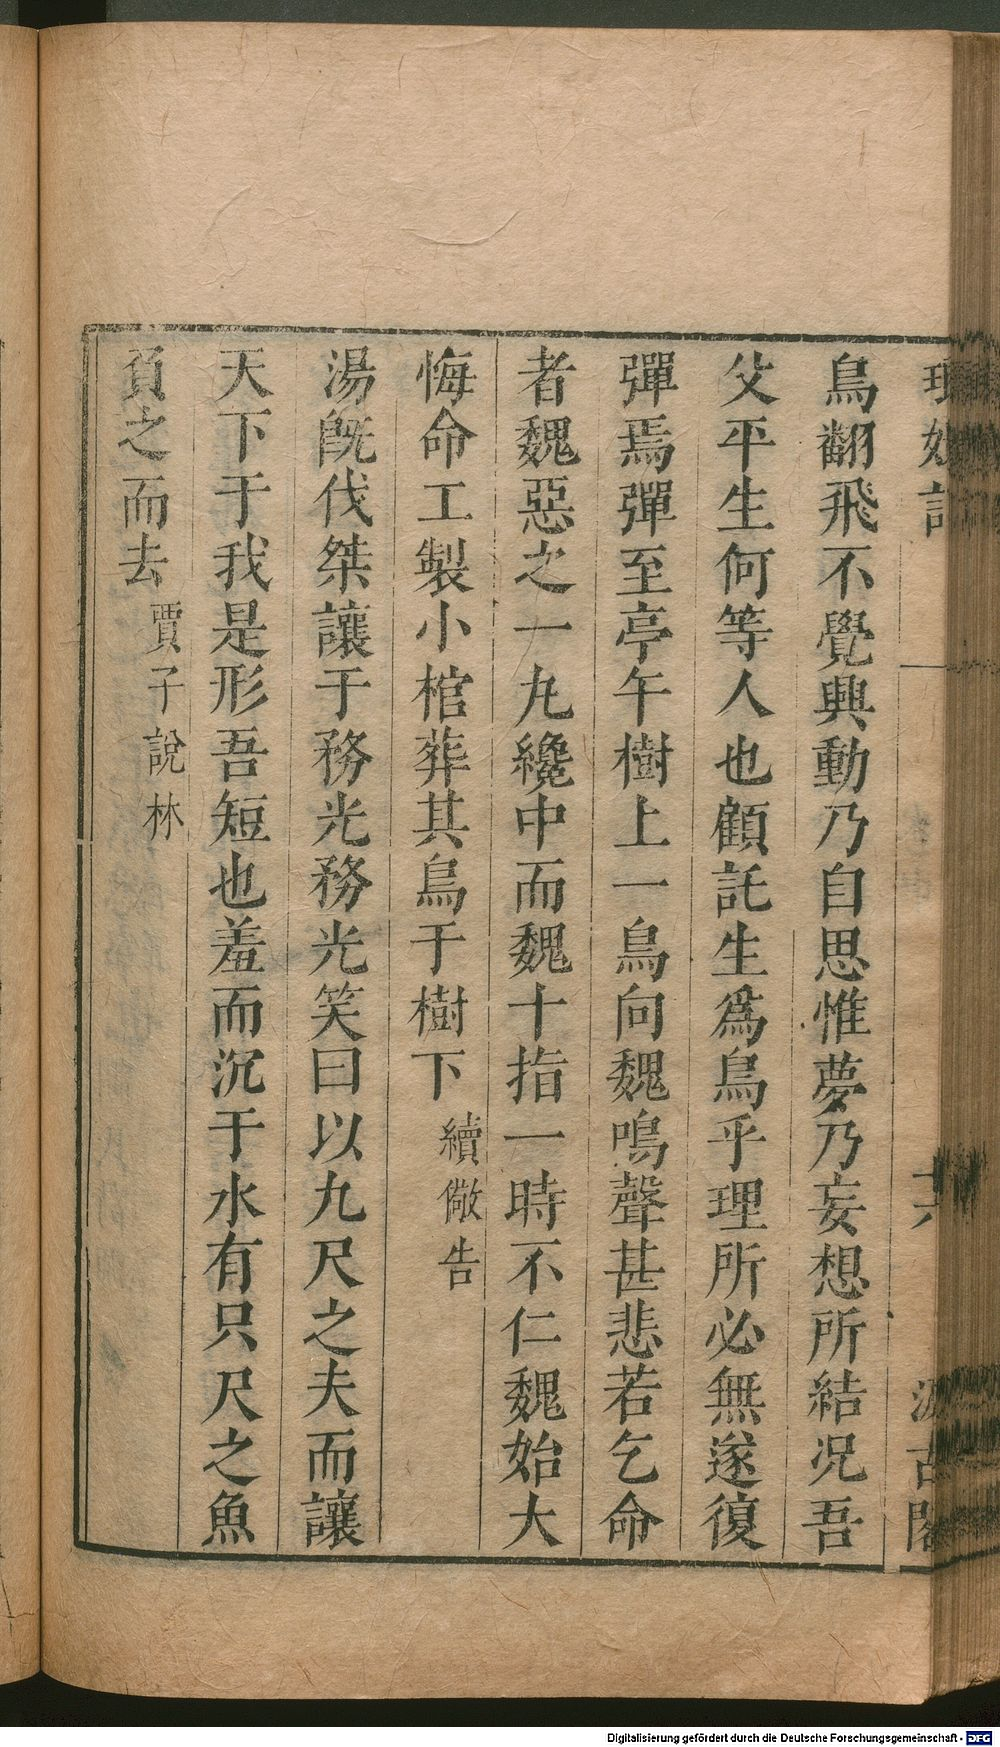 鳥翻飛不覺興動乃自思惟夢乃妄想所結况吾
父平生何等人也顧託生爲鳥乎理所必無遂復
彈焉彈至亭午樹上一鳥向魏鳴聲甚悲若乞命
者魏惡之一丸纔中而魏十指一時不仁魏始大
悔命工製小棺葬其鳥于樹下續儆告
湯旣伐桀讓于務光務光笑曰以九尺之夫而讓
天下于我是形吾短也羞而沉于水有只尺之魚
負之而去賈子說林
六
古閣
Digitalisierung gefördert durch die Deutsche Forschungsgemeinschaft - DFG